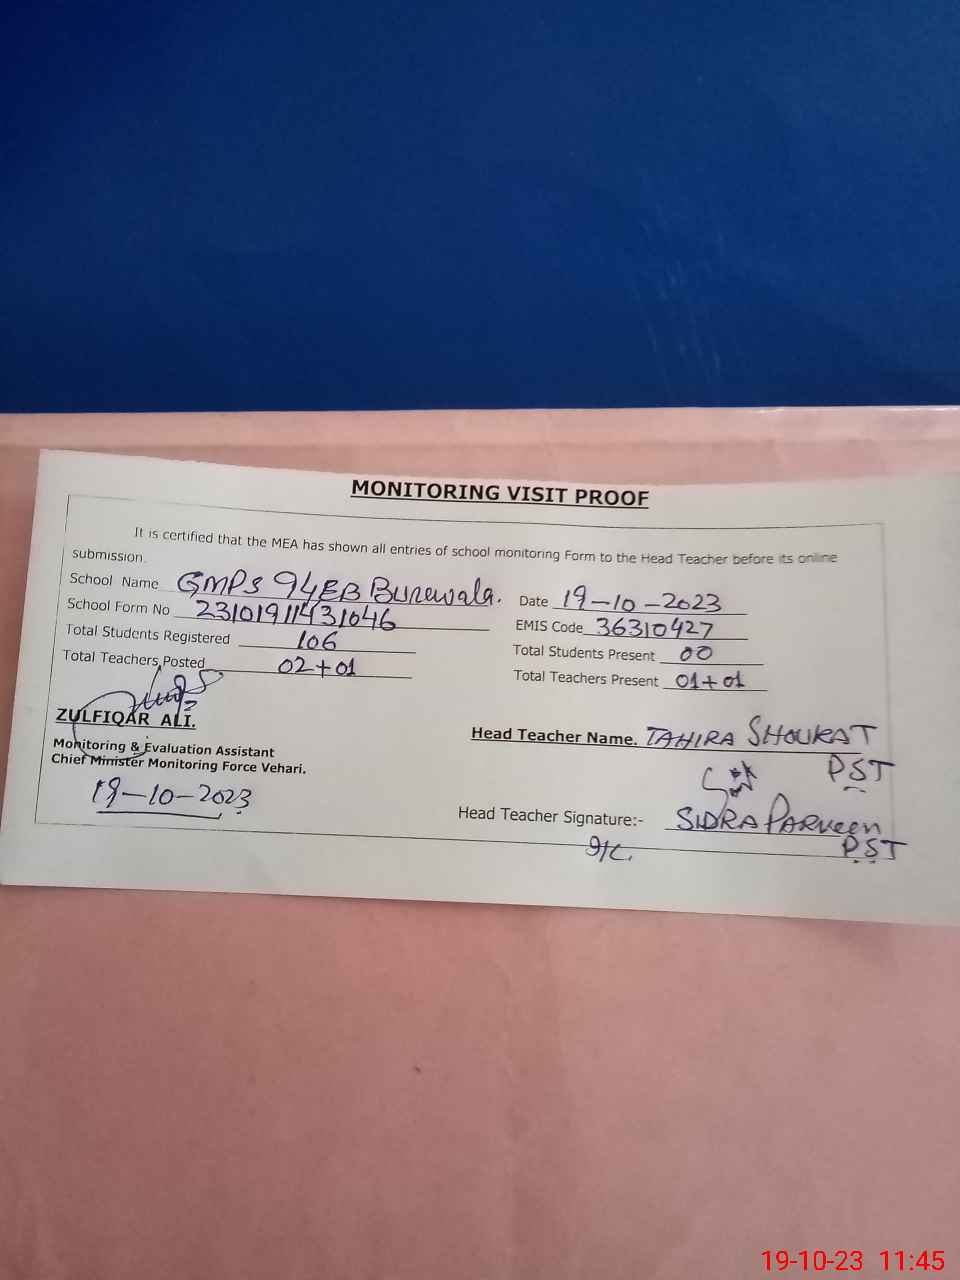 MONITORING VISIT PROOF
It is certified that the MEA has shown all entries of school monitoring Form to the Head Teacher before its online
submission.
School Name GMPS 94EB Burewala.
Date 19-10-2023
School Form No 23101911431046
EMIS Code 36310427
Total Students Registered 106
Total Students Present 00
Total Teachers Posted 02+01
Total Teachers Present 01+01
ZULFIQAR ALI.
Monitoring & Evaluation Assistant
Chief Minister Monitoring Force Vehari.
19-10-2023
Head Teacher Name. TAHIRA SHOUKAT
PST
Head Teacher Signature:- SIDRA PARVEEN
PST
I/C.
19-10-23 11:45